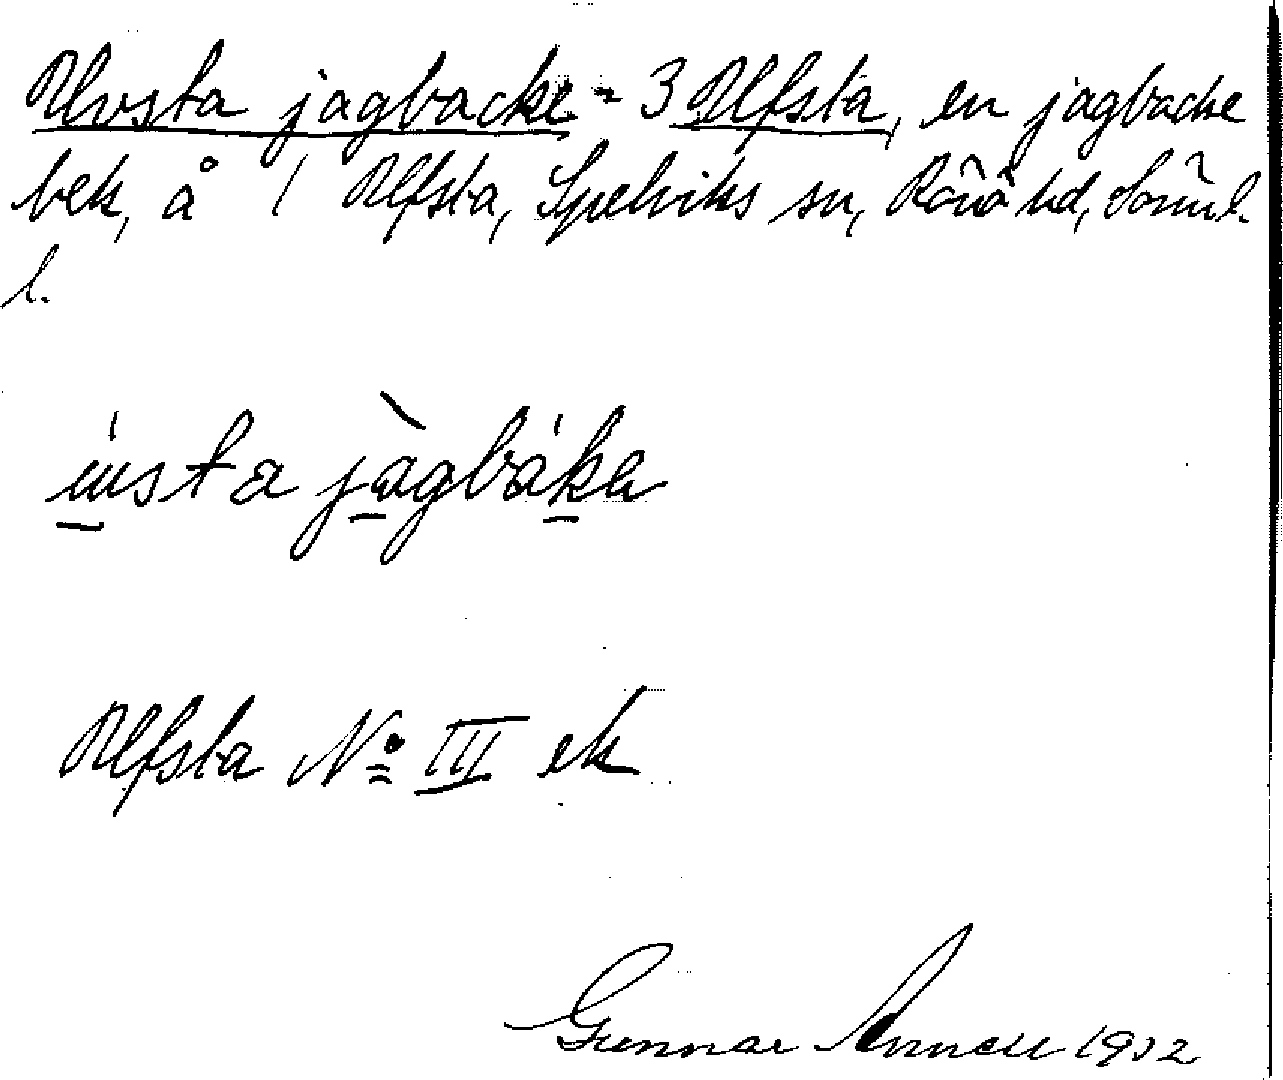 Ulvsta jagbacke = 3 Ulfsta, en jagbacke
bek, å 1 Ulfsta, Spelviks sn, Rönö hd, Sörml.
l.
ùsta jàgbáka
Ulfsta Nº III ek
Gunnar Annell 1932